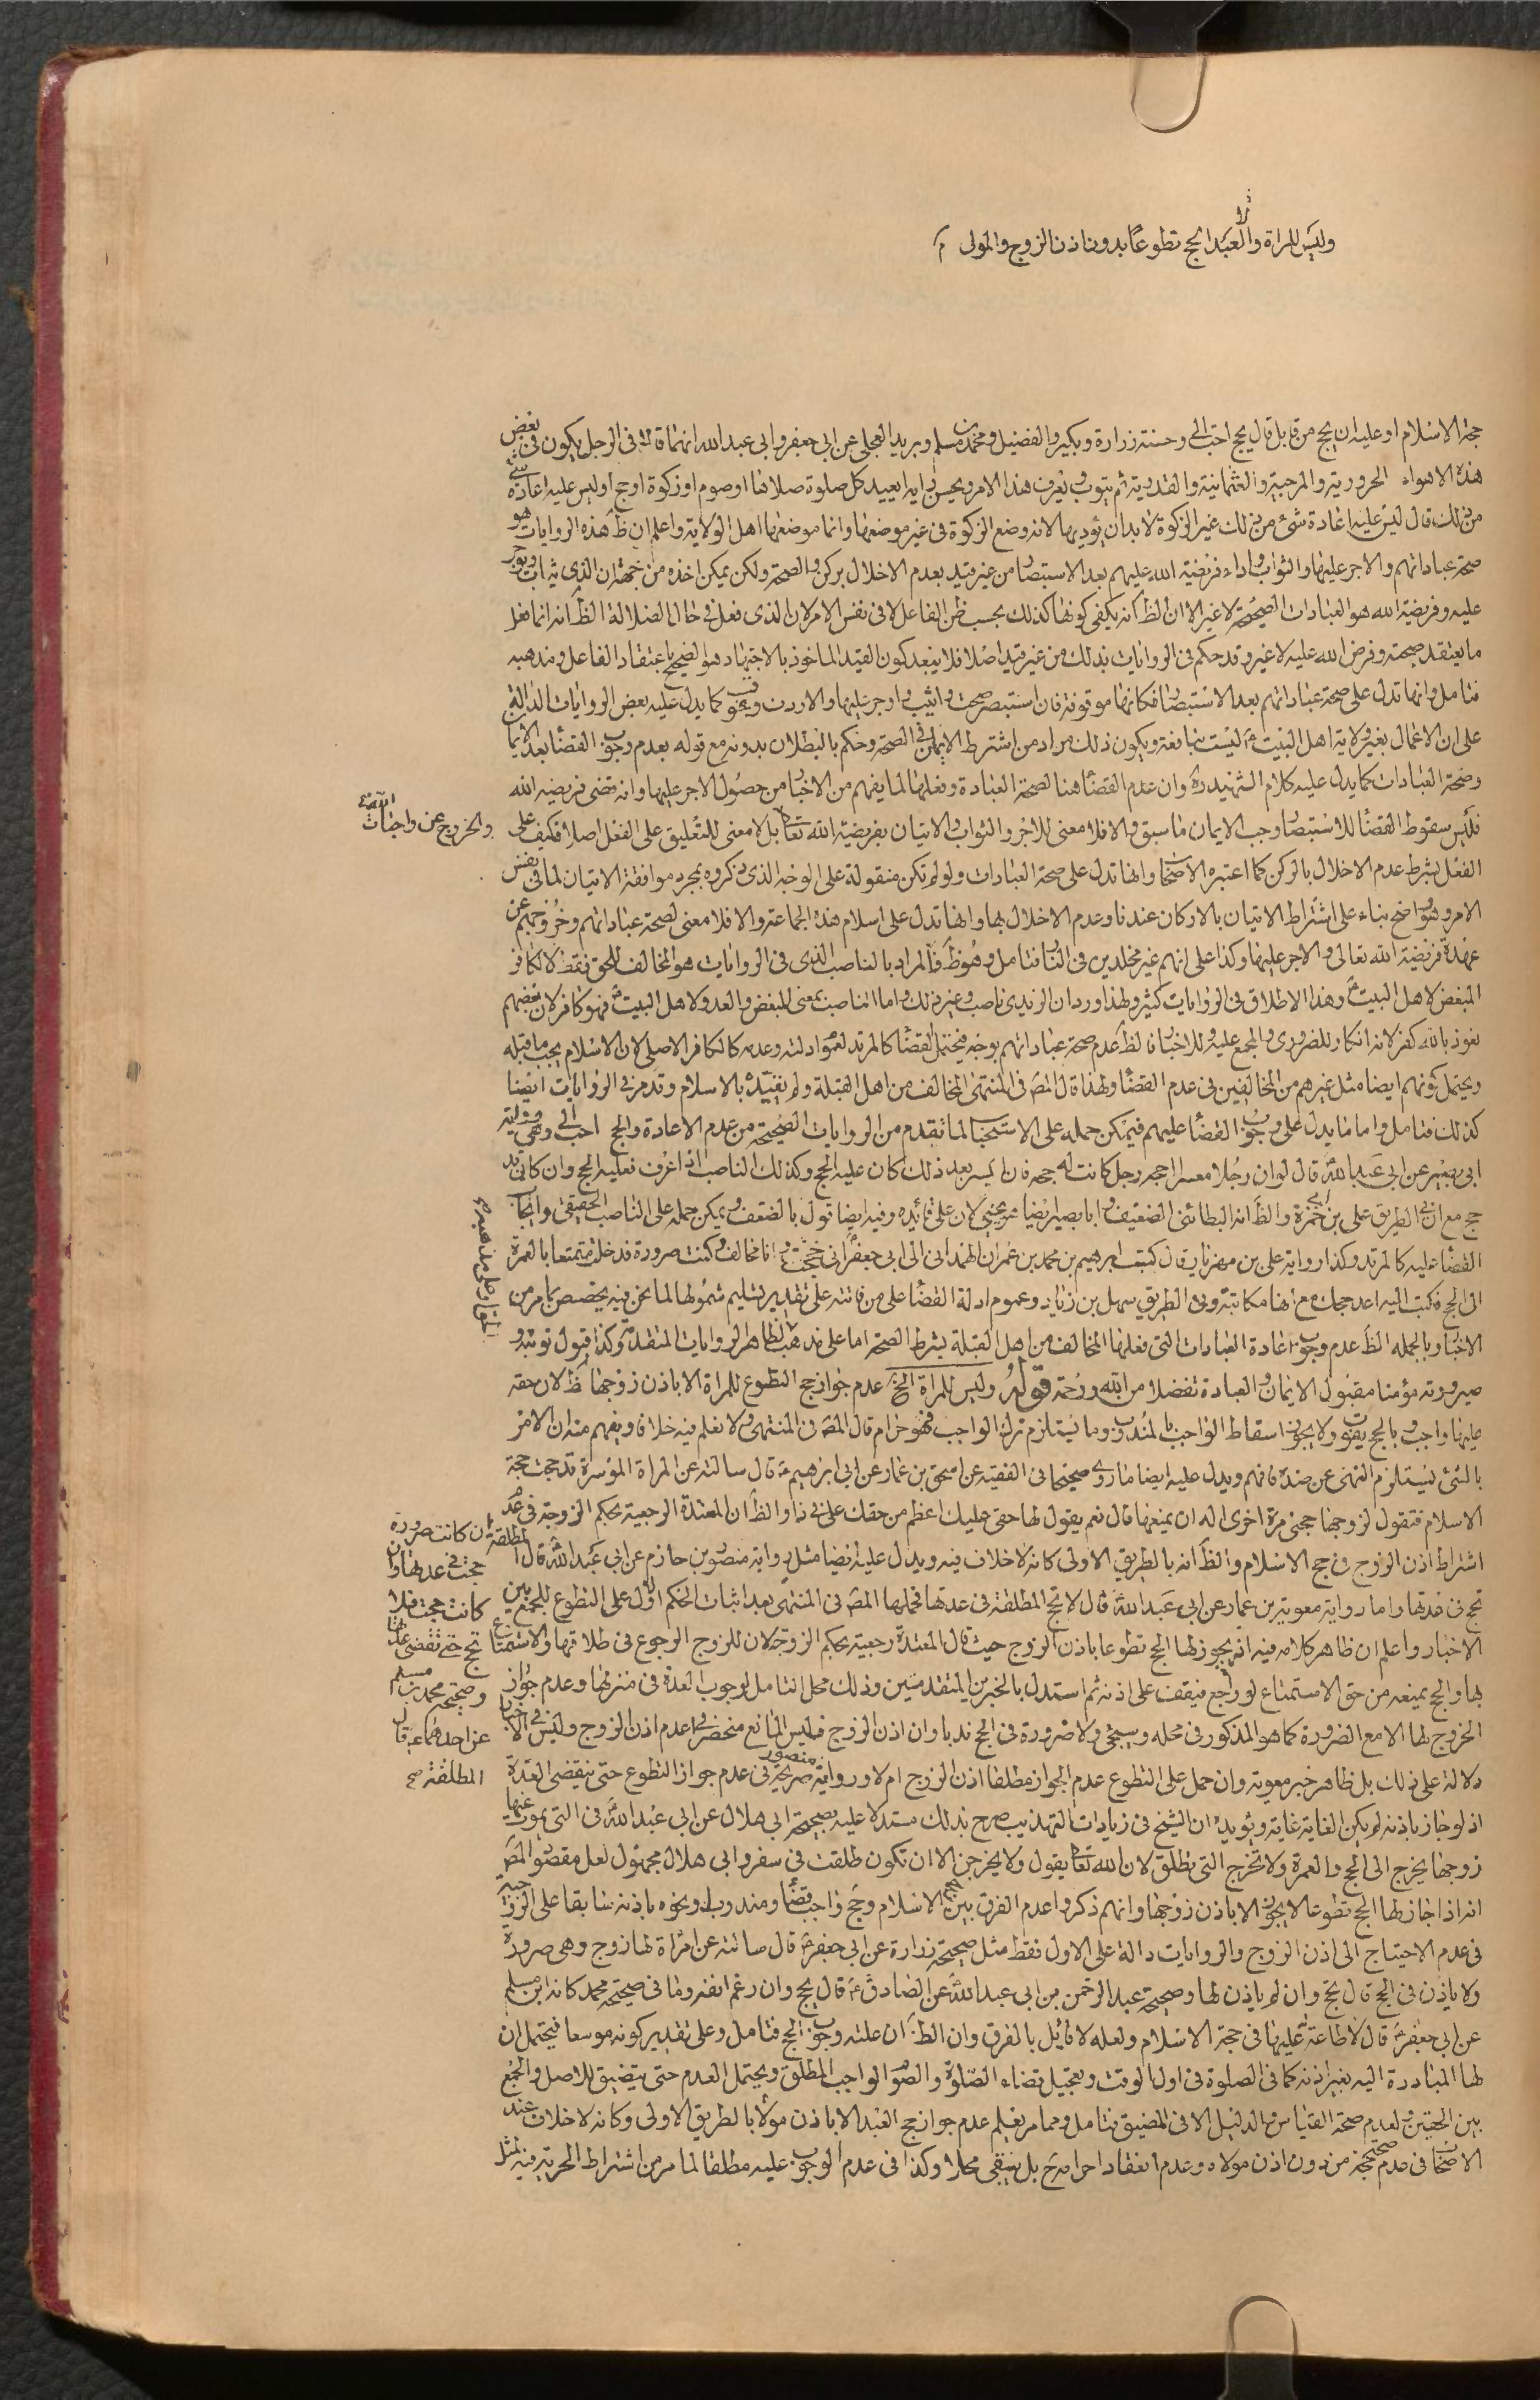 وليس للمراة والعبد الحج تطوعا بدون اذن الزوج والمولى
حجة الاسلام او عليه ان يحج من قابل قال يحج احب الي وحسنة زرارة وبكير والفضيل ومحمد بن مسلم وبريد العجلي عن ابي جعفر وابي عبد الله انهما قالا في الرجل يكون في بعض
هذه الاهواء الحرورية والمرجئة والعثمانية والقدرية ثم يتوب ويعرف هذا الامر ويحسن رايه ايعيد كل صلوة صلاها او صوم او زكوة او حج او ليس عليه اعادة شئ
من ذلك قال ليس عليه اعادة شئ من ذلك غير الزكوة لا بد ان يؤديها لانه وضع الزكوة في غير موضعها وانما موضعها اهل الولاية واعلم ان ظ هذه الروايات هو
صحة عباداتهم والاجر عليها والثواب واداء فريضة الله عليهم بعد الاستبصار من غير قيد بعدم الاخلال بركن والصحة ولكن يمكن اخذه من جهة ان الذي يثاب ويوجر
عليه وفريضة الله هو العبادات الصحيحة لا غير الا ان الظ انه يكفي كونها كذلك بحسب ظن الفاعل لا في نفس الامر لان الذي فعل في حال الضلالة الظ انه انما فعل
ما يعتقد صحته وفرض الله عليه لا غير وقد حكم في الروايات بذلك من غير قيد اصلا فلا يبعد كون القيد الماخوذ بالاجتهاد هو الصحيح باعتقاد الفاعل ومذهبه
فتامل وانها تدل على صحة عباداتهم بعد الاستبصار فكانها موقوفة فان استبصر صحت واثيب واوجر عليها والا ردت وعوقب كما يدل عليه بعض الروايات الدالة
على ان الاعمال بغير ولاية اهل البيت ع ليست بنافعة ويكون ذلك مراد من اشترط الايمان في الصحة وحكم بالبطلان بدونه مع قوله بعدم وجوب القضا بعد الايمان
وصحة العبادات كما يدل عليه كلام الشهيد ره وان عدم القضا هنا لصحة العبادة وفعلها لما يفهم من الاخبار من حصول الاجر عليها وانه قضى فريضة الله
فليس سقوط القضا للاستبصار وجب الايمان ما سبق والا فلا معنى للاجر والثواب والاتيان بفريضة الله تعالى بل لا معنى للتعليق على الفعل اصلا فكيف على
والخروج عن واجبات الله تعالى
الفعل بشرط عدم الاخلال بالركن كما اعتبره الاصحاب وانها تدل على صحة العبادات ولو لم تكن منقولة على الوجه الذي ذكروه بمجرد موافقة الاتيان لما في نفس
الامر وهو واضح بناء على اشتراط الاتيان بالاركان عندنا وعدم الاخلال بها وانها تدل على اسلام هذه الجماعة والا فلا معنى لصحة عباداتهم وخروجهم عن
عهدة فريضة الله تعالى والاجر عليها وكذا على انهم غير مخلدين في النار فتامل وهو ظ فالمراد بالناصب الذي في الروايات هو المخالف للحق فقط لا الكافر
المبغض لاهل البيت ع وهذا الاطلاق في الروايات كثير ولهذا ورد ان الزيدي ناصب وغير ذلك واما الناصب بمعنى المبغض والعدو لاهل البيت ع فهو كافر لان بغضهم
نعوذ بالله كفر لانه انكار للضروري والمجمع عليه وللاخبار فالظ عدم صحة عباداتهم بوجه فيحتمل القضا كالمرتد لعموم ادلته وعدمه كالكافر الاصلي لان الاسلام يجب ما قبله
ويحتمل كونهم ايضا مثل غيرهم من المخالفين في عدم القضا ولهذا قال المص في المنتهى المخالف من اهل القبلة ولم يقيده بالاسلام وقد مر في الروايات ايضا
كذلك فتامل واما ما يدل على وجوب القضا عليهم فيمكن حمله على الاستحباب لما تقدم من الروايات الصحيحة من عدم الاعادة والحج احب الي وهي مثل رواية
ابي بصير عن ابي عبد الله ع قال لو ان رجلا معسرا احجه رجل كانت له حجة فان ايسر بعد ذلك كان عليه الحج وكذلك الناصب اذا عرف فعليه الحج وان كان قد
حج مع ان في الطريق علي بن ابي حمزة والظ انه البطائني الضعيف وابا بصير ايضا هو يحيى لان علي قائده وفيه ايضا قول بالضعف ويمكن حمله على الناصب الحقيقي وايجاب
القضا عليه كالمرتد وكذا رواية علي بن مهزيار قال كتب ابرهيم بن محمد بن عمران الهمداني الى ابي جعفر ع اني حججت وانا مخالف وكنت صرورة فدخلت متمتعا بالعمرة
الى الحج فكتب اليه اعد حجك مع انها مكاتبة وفي الطريق سهل بن زياد وعموم ادلة القضا على من فاتته على تقدير تسليم شمولها لما نحن فيه يخصص بما مر من
الاخبار وبالجملة الظ عدم وجوب اعادة العبادات التي فعلها المخالف من اهل القبلة بشرط الصحة اما على مذهب الظاهر الروايات المتقدمة وكذا قبول توبته و
صيرورته مؤمنا مقبول الايمان والعبادة تفضلا من الله ورحمة قوله وليس للمراة الخ عدم جواز حج التطوع للمراة الا باذن زوجها ظ لان حقه
عليها واجب وبالحج يفوت ولا يجوز اسقاط الواجب بالمندوب وما يستلزم ترك الواجب فهو حرام قال المص في المنتهى ولا نعلم فيه خلافا ويفهم منه ان الامر
بالشئ يستلزم النهي عن ضده فافهم ويدل عليه ايضا ما روي صحيحا في الفقيه عن اسحق بن عمار عن ابي ابرهيم ع قال سالته عن المراة الموسرة قد حجت حجة
الاسلام فتقول لزوجها حجني مرة اخرى اله ان يمنعها قال نعم يقول لها حقي عليك اعظم من حقك علي في ذا والظ ان المعتدة الرجعية بحكم الزوجة في عدم
اشتراط اذن الزوج في حج الاسلام والظ انه بالطريق الاولى كانه لا خلاف فيه ويدل عليه ايضا مثل رواية منصور بن حازم عن ابي عبد الله ع قال
المطلقة ان كانت صرورة
حجت في عدتها وان
كانت حجت فلا
تحج حتى تقضي عدتها
وصحيحة محمد بن مسلم
عن احدهما ع قال
المطلقة صح
تحج في عدتها واما رواية معوية بن عمار عن ابي عبد الله ع قال لا تحج المطلقة في عدتها فحملها المص في المنتهى بعد اثبات الحكم الاول على التطوع للجمع بين
الاخبار واعلم ان ظاهر كلامه فيه انه يجوز لها الحج تطوعا باذن الزوج حيث قال المعتدة رجعية بحكم الزوجة لان للزوج الرجوع في طلاقها والاستمتاع
بها والحج يمنعه من حق الاستمتاع لو راجع فيقف على اذنه ثم استدل بالخبرين المتقدمين وذلك محل التامل لوجوب العدة في منزلها وعدم جواز
الخروج لها الا مع الضرورة كما هو المذكور في محله وسيجئ ولا ضرورة في الحج ندبا وان اذن الزوج فليس المانع منحصرا في عدم اذن الزوج وليس في الاخبار
دلالة على ذلك بل ظاهر خبر معوية وان حمل على التطوع عدم الجواز مطلقا اذن الزوج ام لا ورواية منصور صريحة في عدم جواز التطوع حتى تنقضي العدة
اذ لو جاز باذنه لم يكن الغاية غاية ويؤيده ان الشيخ في زيادات التهذيب صرح بذلك مستدلا عليه بصحيحة ابي هلال عن ابي عبد الله ع في التي يموت عنها
زوجها يخرج الى الحج والعمرة ولا تخرج التي تطلق لان الله تعالى يقول ولا يخرجن الا ان تكون طلقت في سفر وابي هلال مجهول لعل مقصود المص
انه اذا جاز لها الحج تطوعا لا يجوز الا باذن زوجها وانهم ذكروا عدم الفرق بين حج الاسلام وحج واجب قضا ومندوب ونحوه باذنه سابقا على الزوجية
في عدم الاحتياج الى اذن الزوج والروايات دالة على الاول فقط مثل صحيحة زرارة عن ابي جعفر ع قال سالته عن امراة لها زوج وهي صرورة
ولا ياذن في الحج قال تحج وان لم ياذن لها وصحيحة عبد الرحمن بن ابي عبد الله عن الصادق ع قال تحج وان رغم انفه وما في صحيحة محمد كانه ابن مسلم
عن ابي جعفر ع قال لا طاعة عليها في حجة الاسلام ولعله لا قائل بالفرق وان الظ ان علته وجوب الحج فتامل وعلى تقدير كونه موسعا فيحتمل ان
لها المبادرة اليه بغير اذنه كما في الصلوة في اول الوقت وتعجيل قضاء الصلوة والصوم الواجب المطلق ويحتمل العدم حتى يتضيق للاصل والجمع
بين الحقين ولعدم صحة القياس والدليل الا في المضيق فتامل ومما مر يعلم عدم جواز حج العبد الا باذن مولاه بالطريق الاولى وكانه لا خلاف عند
الاصحاب في عدم صحة حجه من دون اذن مولاه وعدم انعقاد احرامه ح بل يبقى محلا وكذا في عدم الوجوب عليه مطلقا لما مر من اشتراط الحرية فيه لمثل